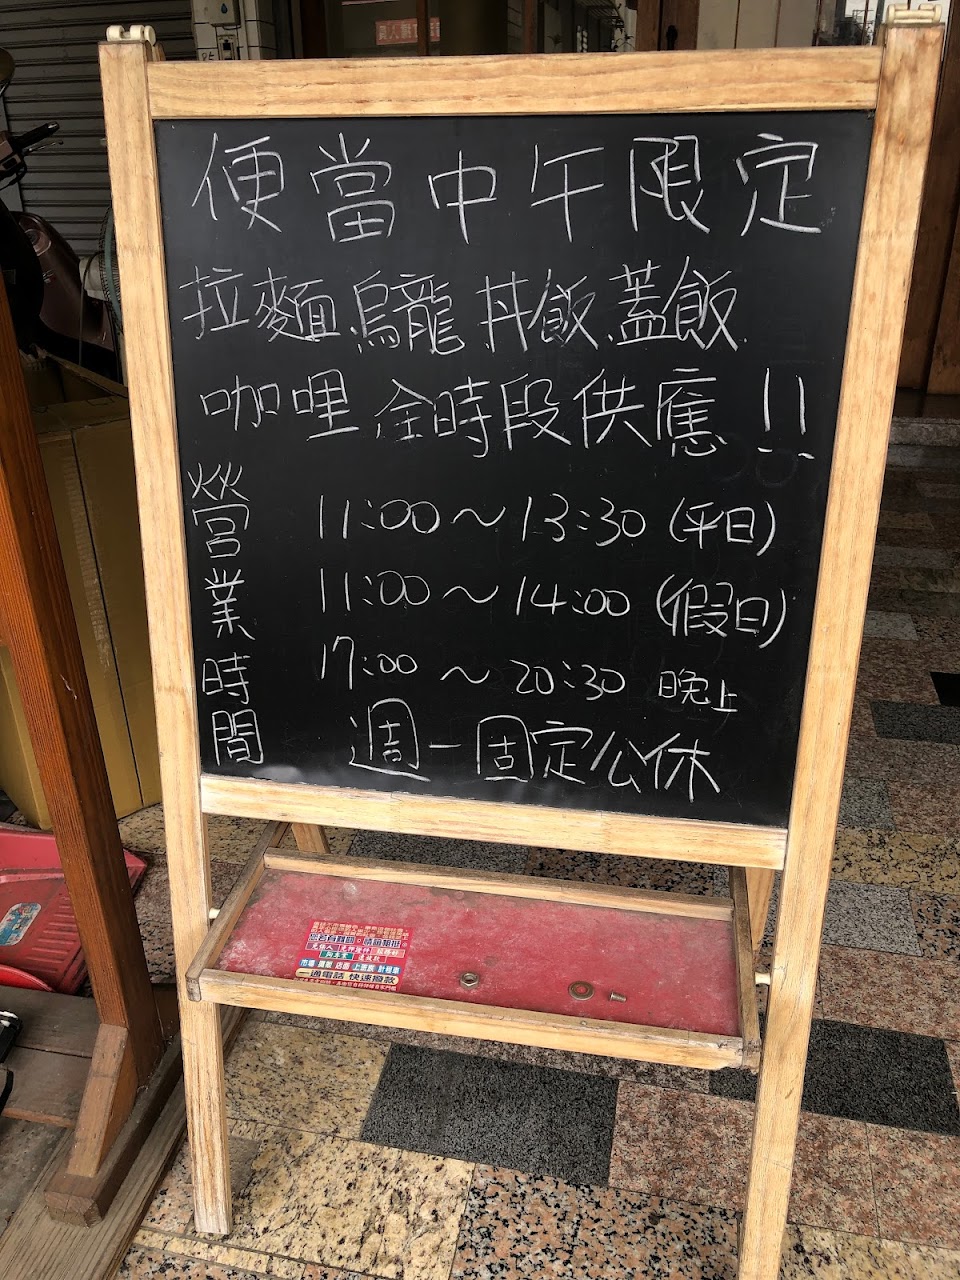 便當中午限定
拉麵.烏龍.丼飯.蓋飯.
咖哩 全時段供應!!
營業時間
11:00～13:30 (平日)
11:00～14:00 (假日)
17:00～20:30 晚上
週一固定公休
一通電話 快速撥款